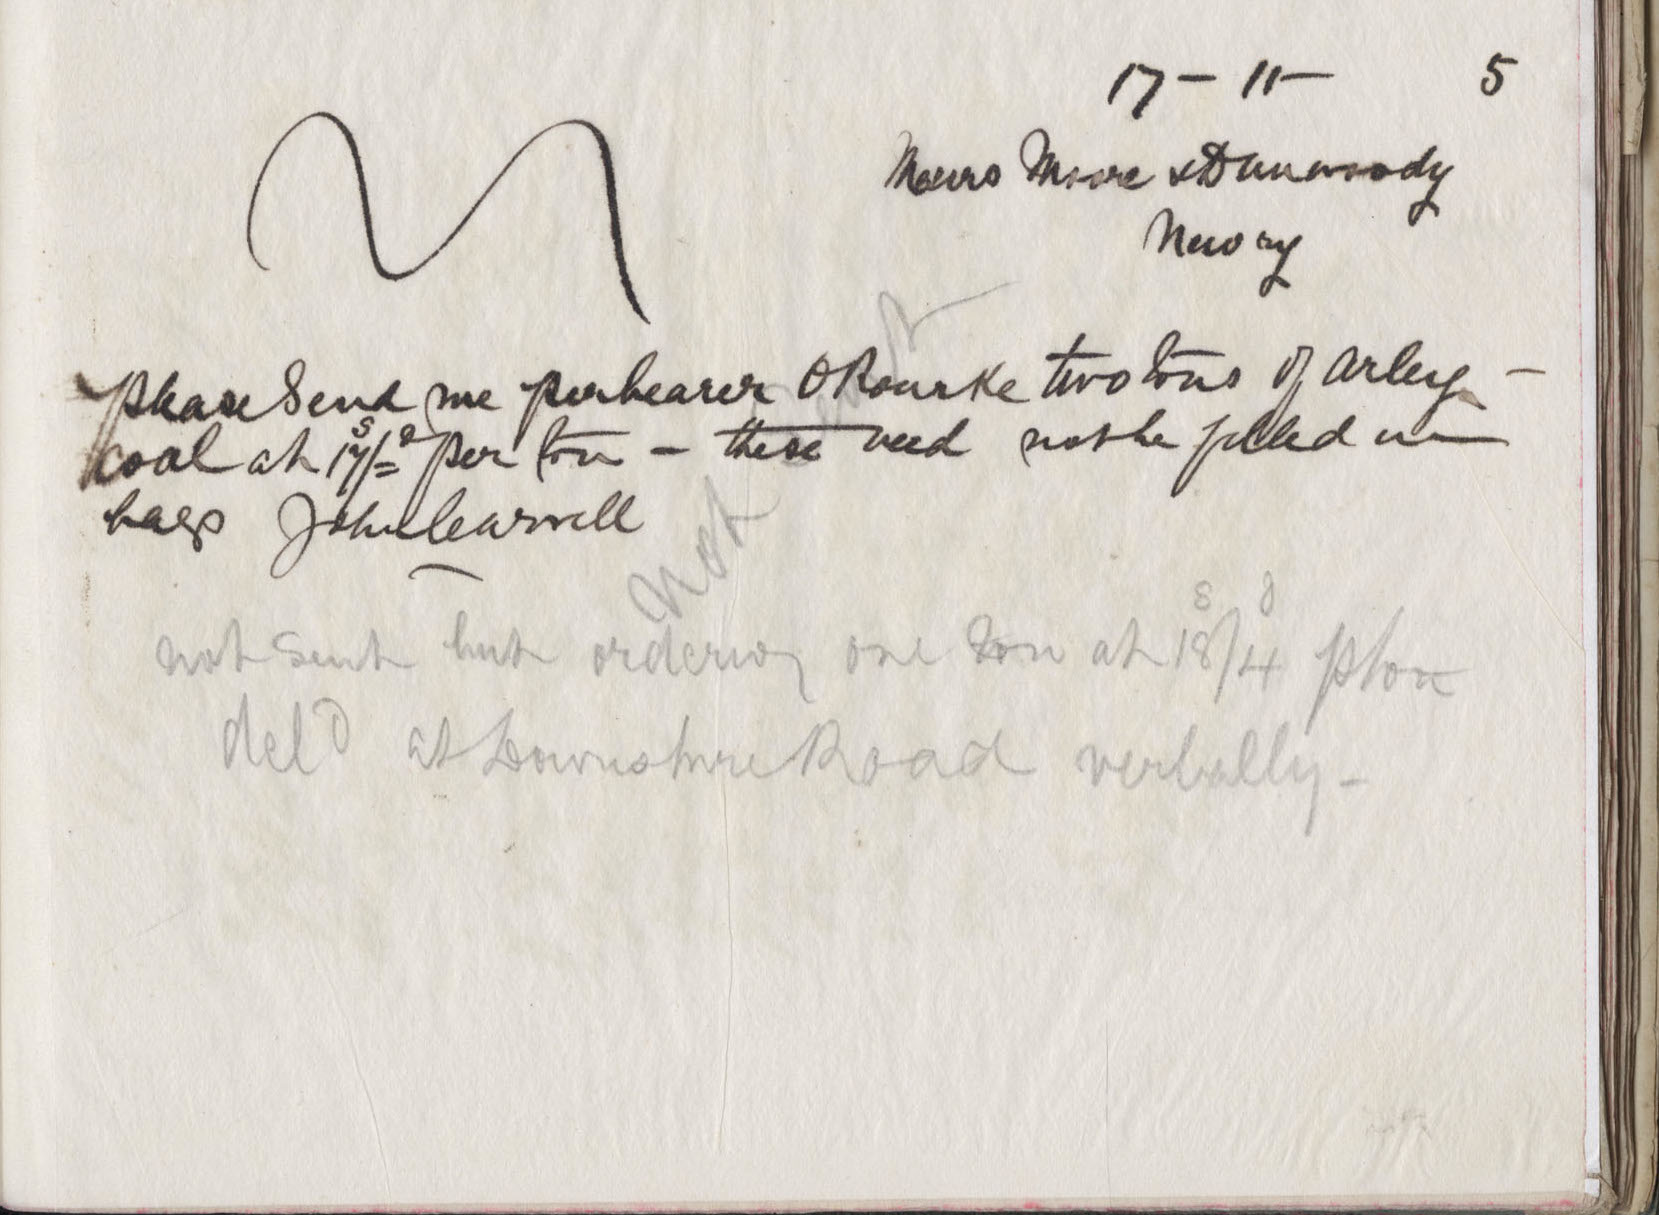 17 - 11 - 5
Messrs Moore & Dunwoody
Newry
Please Send me per bearer O Rourke two tons of Arley -
coal at 17s/=d per ton - these need not be filled in
bags John Carvill
not sent
not sent but ordering one ton at 18s/4d p ton
deld at Downshire Road verbally -